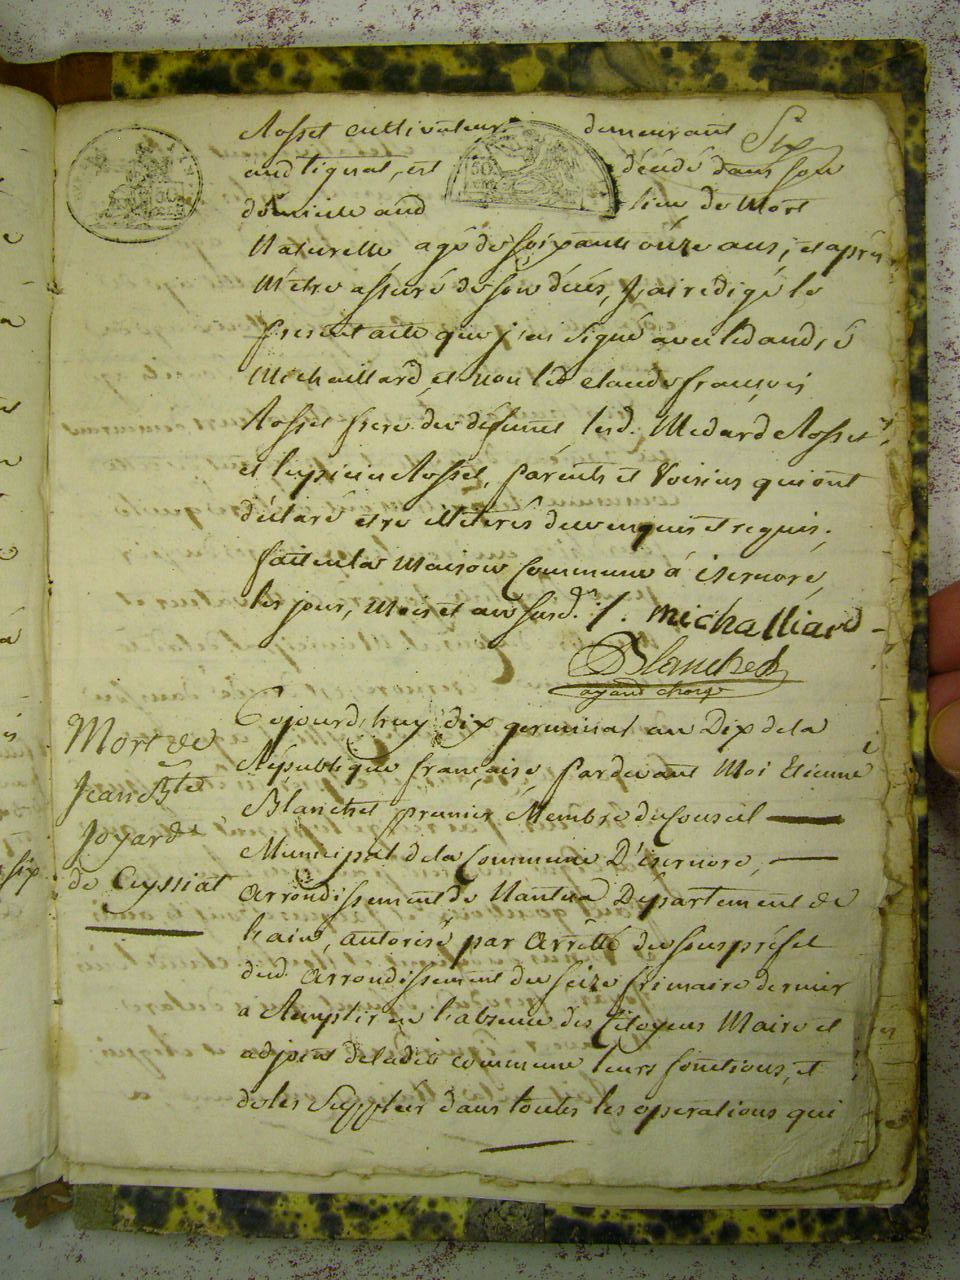 Six
Rosset cultivateur demeurant
audtignat, est décédé dans son
domicile aud lieu de Mort
Naturelle, agé de soixante onze ans, et après
M'être assuré de son décés, J'ai redigé le
present acte que j'ai signé avec led andré
Michaillard, et non led Claude françois
Rosset frere du défunt, lesd. Medard Rosset
et lupicin Rosset, parents et Voisins qui ont
déclaré etre illiterés de ce enquis et requis.
fait en la Maison Commune à isernore,
les jour, Mois et an susd. /. michalliard
Blanchet
ayant charge
Mort de
Jean Bte
Joyard
de Ceyssiat
Cejourd'huy dix germinal an Dix de la
République française pardevant Moi Etienne
Blanchet premier Membre du Conseil
Municipal de la Commune D'isernore,
arrondissement de Nantua Département de
l'ain, autorisé par arrêtté du sous préfet
dud. arrondissement du seize frimaire dernier
a Remplir en l'absence des Citoyens Maire et
adjoint de ladite commune leurs fonctions, et
de les Suppleer dans toutes les operations qui
six